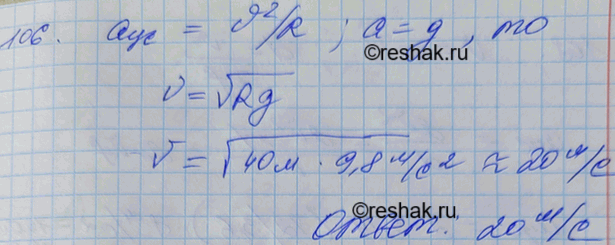 106. aцс = υ²/R ; a = g , то
©reshak.ru
υ = √Rg
υ = √40м · 9,8 м/с2 ≈ 20 м/с
©reshak.ru
Ответ. 20 м/с